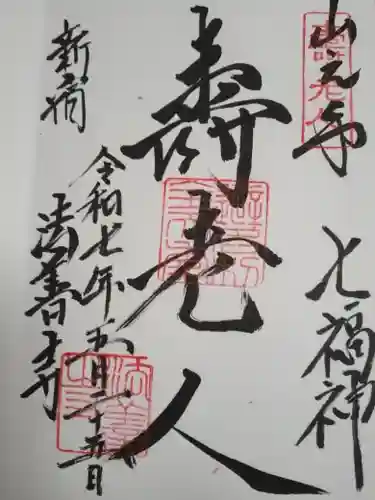 七福神
壽老人
新宿
令和七年五月二十五日
法善寺